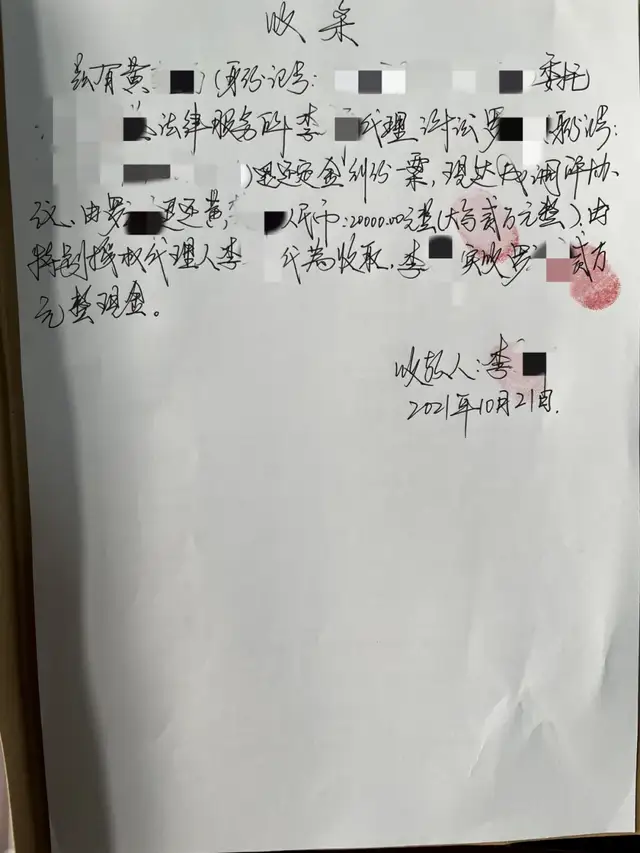 收条
兹有黄（身份证号：委托
法律服务所李代理诉讼罗身份证号：
）退还定金纠纷一案，现达成调解协
议、由罗退还黄人民币：20000.00元整（大写贰万元整）、由
特别授权代理人李代为收取，李实收罗贰万
元整现金。
收款人：李
2021年10月21日.